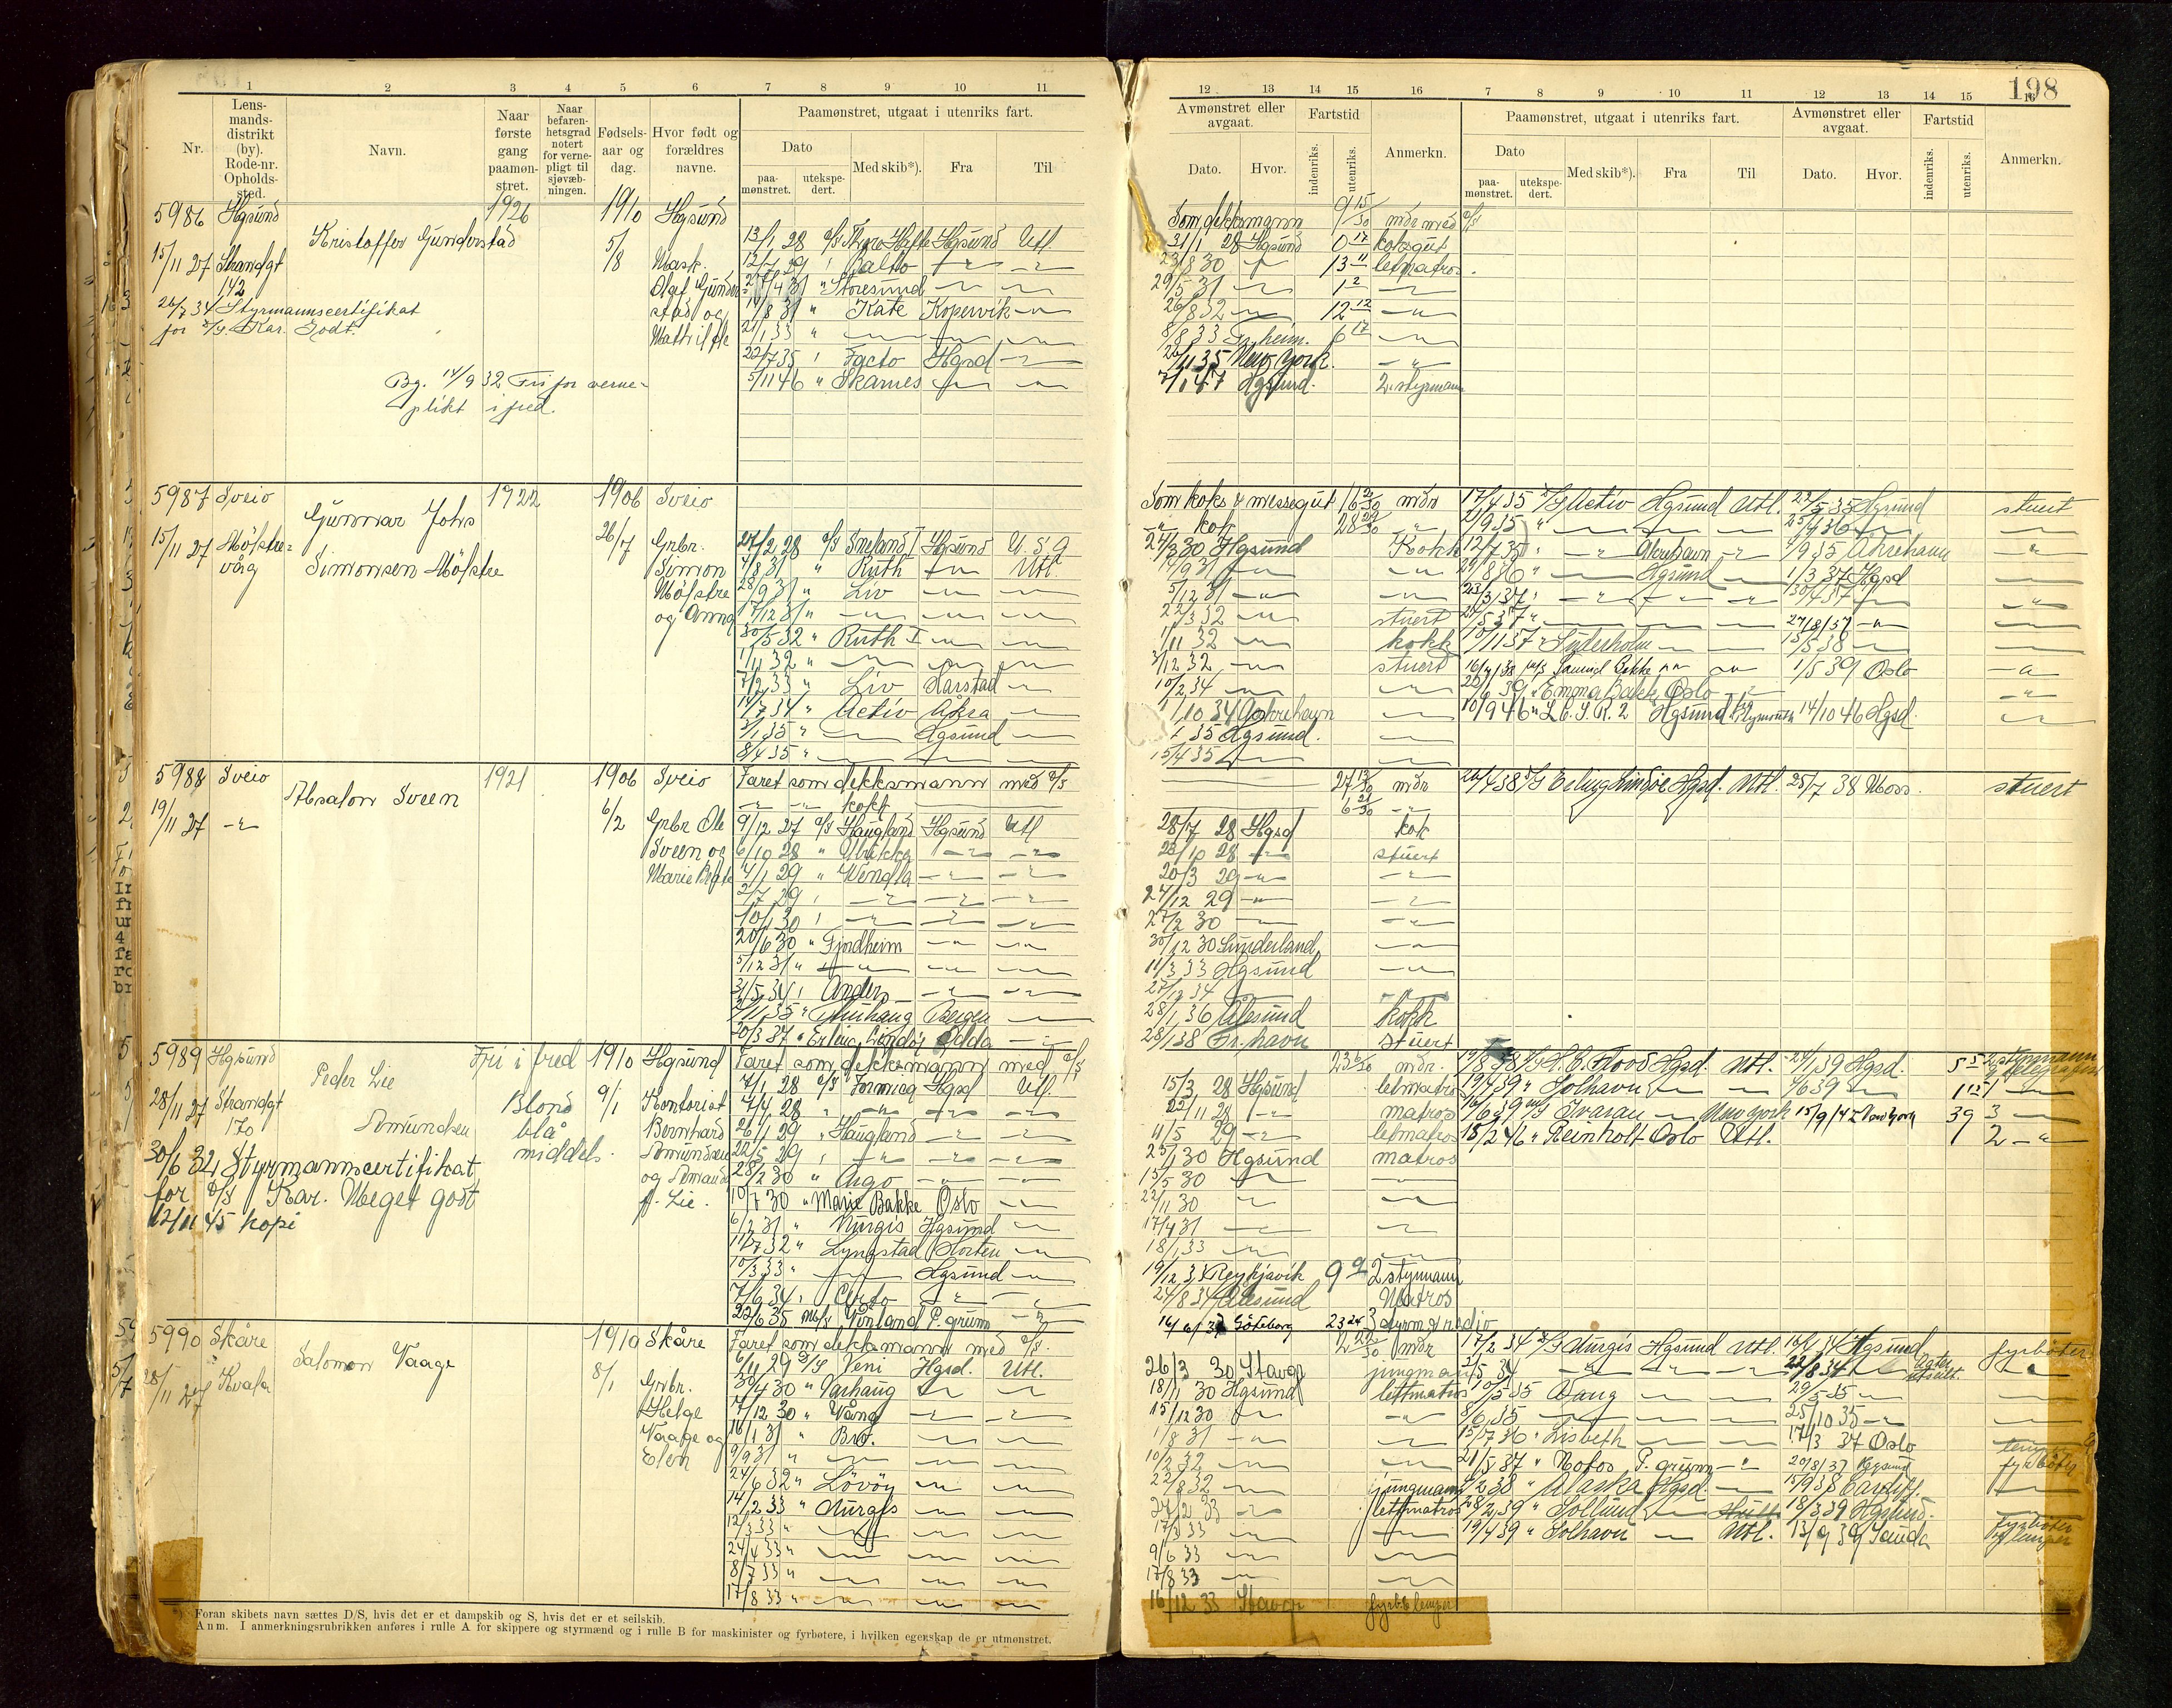 198
1 2 3 4 5 6 7 8 9 10 11
Nr.
Lens-
mands-
distrikt
(by).
Rode-nr.
Opholds-
sted.
Navn.
Naar
første
gang
paamøn-
stret.
Naar
befaren-
hetsgrad
notert
for verne-
pligt til
sjøvæb-
ningen.
Fødsels-
aar og
dag.
Hvor født og
forældres
navne.
Paamønstret, utgaat i utenriks fart.
Dato
paa-
mønstret.
utekspe-
dert.
Med skib*).
Fra
Til
12 13 14 15 16 7 8 9 10 11 12 13 14 15 16
Avmønstret eller
avgaat.
Dato. Hvor.
Fartstid
indenriks.
utenriks.
Anmerkn.
Paamønstret, utgaat i utenriks fart.
Dato
paa-
mønstret.
utekspe-
dert.
Med skib*).
Fra
Til
Avmønstret eller
avgaat.
Dato. Hvor.
Fartstid
indenriks.
utenriks.
Anmerkn.
5986 Hgsund 1926 1910 Hgsund
Kristoffer Gunderstad
15/11 27 Strandgt 5/8 Mask.
142
Olaf Gunder-
stad og
Mathilde
26/7 34 Styrmannscertifikat
for D/S. Kar. Godt.
Bg. 14/9 32 Fri for verne-
plikt i fred.
13/1 28 D/S Thyra Hafte Hgsund Utl.
12/7 29 " Balto
27/4 31 " Storesund
14/8 31 " Kate Kopervik
21/1 33 "
22/7 35 " Facto Hgsd
5/11 46 " Skarnes
Som dekksmann 9 15/30 mdr med D/S
31/1 28 Hgsund 0 17 koksgut
23/8 30 13 11 letmatros
29/5 31 1 2
26/8 32 12 12
8/8 33 Tr.heim. 6 17
New York.
Hgsund. 2. styrmann
5987 Sveio 1922 1906 Sveio
Gunnar Johs
Simonsen Møkstre
15/11 27 26/7 Grbr.
Simon
og Anna
27/2 28 D/S Sneland I Hgsund U.S.A
4/8 31 " Ruth Utl.
28/9 31 " Liv
17/12 31 "
30/5 32 " Ruth I
1/11 32 "
7/2 33 " Liv Harstad
14/7 34 " Activ Åkra
2/1 35 " Hgsund
8/4 35 "
Som koks & messegut 16 2/30 mdr
" kok 28 29/30 "
24/3 30 Hgsund Kokk
14/9 31
5/12 31
22/3 32 stuert
1/11 32 kokk
3/12 32 stuert
10/2 34
1/10 34 Aakrehavn
35 Hgsund.
15/4 35
17/4 35 D/S Activ Hgsund Utl. 23/5 35 Hgsund stuert
2/9 35 " 25/4 36
12/7 35 " Åkrehavn 4/9 35 Åkrehavn "
29/8 36 " Hgsund 1/3 37 Hgsd
23/3 37 " 30/4 37
24/5 37 " 27/8 37
10/11 37 " Söderholm 15/5 38
16/7 38 M/S Samuel Bakke 1/5 39 Oslo
22/6 39 " Emma Bakke Oslo
10/9 46 " L.C.J.R. 2 Hgsund Plymouth 14/10 46 Hgsd.
5988 Sveio 1921 1906 Sveio
Absalon Sveen
19/11 27 6/2 Grbr Ole
Sveen og
Marie Birgite
Faret som dekksmann med D/S
kokk
9/12 27 D/S Haugland Hgsund Utl
6/10 28 " Ulrikka
4/1 29 " Wendla
2/7 29 "
10/1 30 "
20/6 30 " Fjordheim
5/12 31 "
31/5 34 " Anders
2/11 35 " Bergen
20/3 37 " Erling Lindøe Odda
27 13/30 mdr
6 21/30 "
28/7 28 Hgsd kok
23/10 28 stuert
20/3 29
24/12 29
27/2 30
30/12 30 Sunderland
11/3 33 Hgsund
27/12 34
28/1 36 Ålesund kokk
28/1 38 Fr.havn stuert
26/4 38 D/S Erling Lindøe Hgsd. Utl. 25/7 38 Moss. stuert
5989 Hgsund Fri i fred 1910 Hgsund
Peder Lie
Amundsen
28/11 27 Strandgt 170
Blond
blå
middels.
9/1 Kontorist
Bernhard
Amundsen
og Amanda
f. Lie.
30/6 32 Styrmannscertifikat
for D/S Kar. Meget godt
12/11 45 kopi
Faret som dekksmann med D/S
7/1 28 D/S Formica Hgsd Utl.
7/4 28 "
26/1 29 " Haugland
22/5 29 "
28/2 30 " Argo
10/7 30 " Marie Bakke Oslo
6/2 31 " Aurgis Hgsund
11/7 32 " Lyngstad Horten
10/3 33 " Hgsund
7/6 34 " Certo
22/6 35 M/S Vonland P. grunn
23 6/30 mdr.
15/3 28 Hgsund letmatros
22/11 28 matros
11/5 29 letmatros
25/1 30 Hgsund matros
15/5 30
22/11 30
17/4 31
18/1 33
19/12 33 Reykjavik 9 9 2 styrmann
24/8 34 Ålesund Matros
16/6 37 Göteborg 23 24 3 styrm & radio
19/8 38 D/S H.C. Flood Hgsd. Utl. 24/1 39 Hgsd. 5 5 2 styrmann
& telegrafist
19/4 39 " Solhavn 4/6 39 1 15
16/6 39 M/S Ivaran New York 15/9 42 New York 39 3
15/2 46 " Reinholt Oslo Utl. 2
5990 Skåre 1910 Skåre
Salomon Vaage
28/11 27 Kvala 8/1 Grbr.
Helge
Vaage og
Elen
Faret som dekksmann med D/S.
6/11 29 D/S Veni Hgsd. Utl.
30/4 30 " Varhaug
7/12 30 " Vång
16/1 31 " Bro.
9/9 31 "
24/6 32 " Lövöy
14/2 33 " Aurgis
12/3 33 "
24/4 33 "
8/7 33 "
17/8 33 "
2 22/30 mdr
26/3 30 Stavgr jungmann
18/11 30 Hgsund lettmatros
15/12 30
1/8 31
10/2 32
22/8 32 jungmann
27/2 33 lettmatros
17/3 33
9/6 33
17/8 33
16/12 33 Stavgr fyrb. & lemper
17/2 34 D/S Aurgis Hgsund Utl. 16/4 34 Hgsund fyrbøter
2/5 34 22/8 34
10/5 35 Vang 29/5 35
8/6 35 25/10 35
15/7 36 " Lisbeth 17/3 37 Oslo
21/5 37 " Notos P. grunn 20/8 37 Hgsund fyrbøter
4/2 38 " Alaska Hgsd. 15/9 38 Cardiff.
28/2 39 " Sollund 18/3 39 Hgsund.
19/4 39 " Solhavn Utl. 13/9 39 Sauda fyrbøter
lemper
Foran skibets navn sættes D/S, hvis det er et dampskib og S, hvis det er et seilskib.
Anm. I anmerkningsrubrikken anføres i rulle A for skippere og styrmænd og i rulle B for maskinister og fyrbøtere, i hvilken egenskap de er utmønstret.